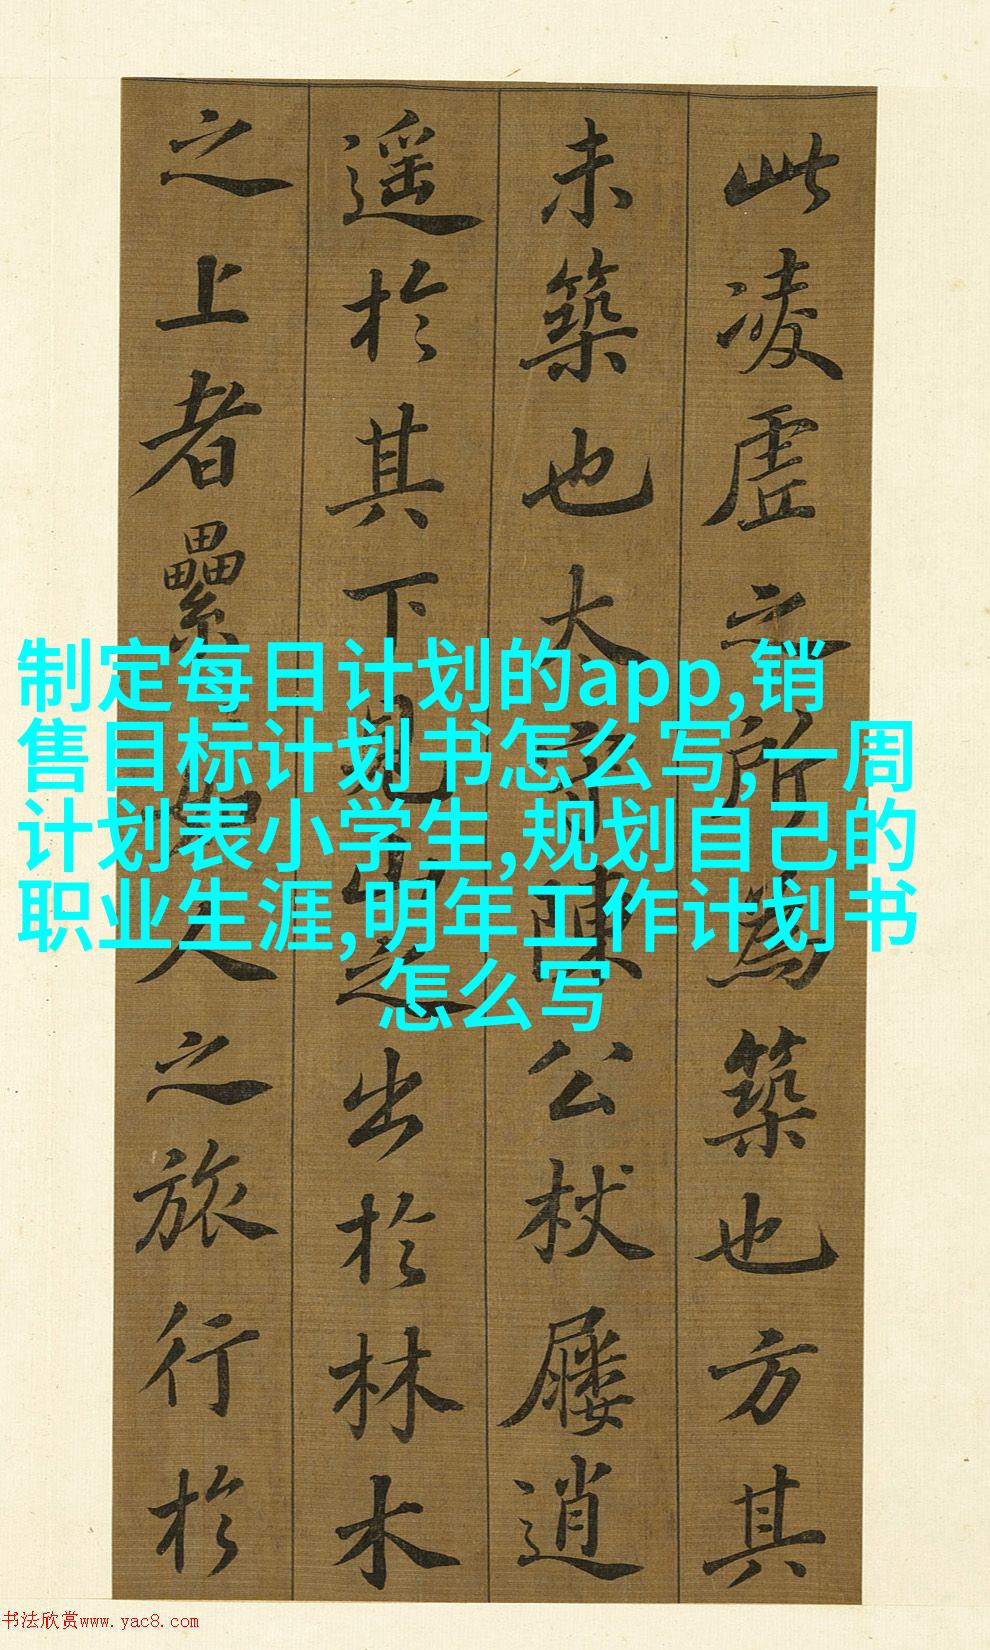 此凌虚之所為築也方其
未築也太守陳公杖屨逍
遥於其下見山之出於林木
之上者纍纍如人之旅行於
制定每日计划的app,销
售目标计划书怎么写,一周
计划表小学生,规划自己的
职业生涯,明年工作计划书
怎么写
书法欣赏www.yac8.com